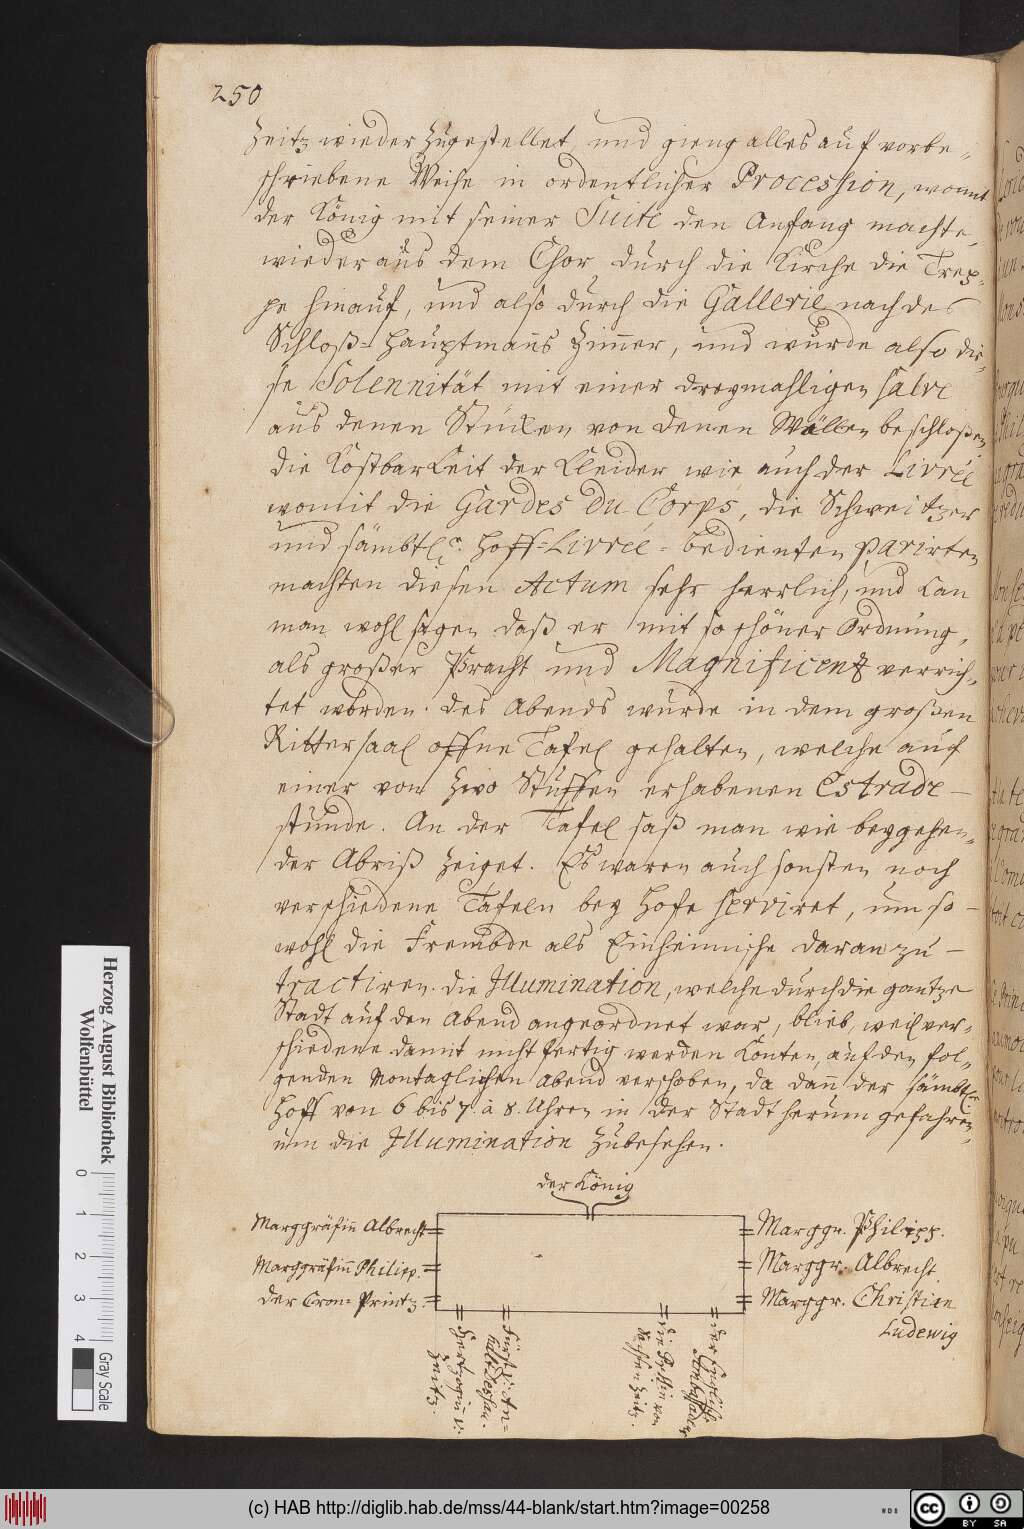 250
Zeitz wieder zugestellet, und gieng alles auf vorbe-
schriebene Weise in ordentlicher Procession, womit
der König mit seiner Suite den Anfang machte,
wieder aus dem Chor durch die Kirche die Trep-
pe hinauf, und also durch die Gallerie nach des
Schloß-Hauptmañs Zim̃er, und wurde also die-
se Solennität mit einer dreymahligen Salve
aus denen Stücken von denen Wällen beschloßen,
die Kostbarkeit der Kleider wie auch der Livrée
womit die Gardes du Corps, die Schweitzer
und sämbtl. Hoff-Livrée-bedienten parirten
machten diesen Actum sehr herrlich, und kan
man wohl sagen daß er mit so schöner Ordnung,
als großer Pracht und Magnificentz verrich-
tet worden. des Abends wurde in dem großen
Rittersaal offne Tafel gehalten, welche auf
einer von zwo Stuffen erhabenen Estrade
stunde. An der Tafel saß man wie beygehen-
der Abriß zeiget. Es waren auch sonsten noch
verschiedene Tafeln bey Hofe serviret, um so-
wohl die Frembde als Einheimische daran zu
tractiren. die Illumination, welche durch die gantze
Stadt auf den Abend angeordnet war, blieb, weil ver-
schiedene damit nicht fertig werden konten, auf den fol-
genden Montaglichen Abend verschoben, da dañ der sämbtl.
Hoff von 6 bis 7. à 8. Uhren in der Stadt herum gefahren,
um die Illumination zubesehen.
der König
Marggräfiñ Albrecht
Marggr. Philipp.
Marggräfiñ Philipp.
Marggr. Albrecht
der Cron-Printz.
Marggr. Christian
Ludewig
Hertzogin v.
Zeitz.
Fürst v. An-
halt Dessau.
die Prtssin von
Sachsen Zeitz.
der Englisch.
Ambassadeur
Herzog August Bibliothek
Wolfenbüttel
0 1 2 3 4
Gray Scale
(c) HAB http://diglib.hab.de/mss/44-blank/start.htm?image=00258
WDB
cc BY SA